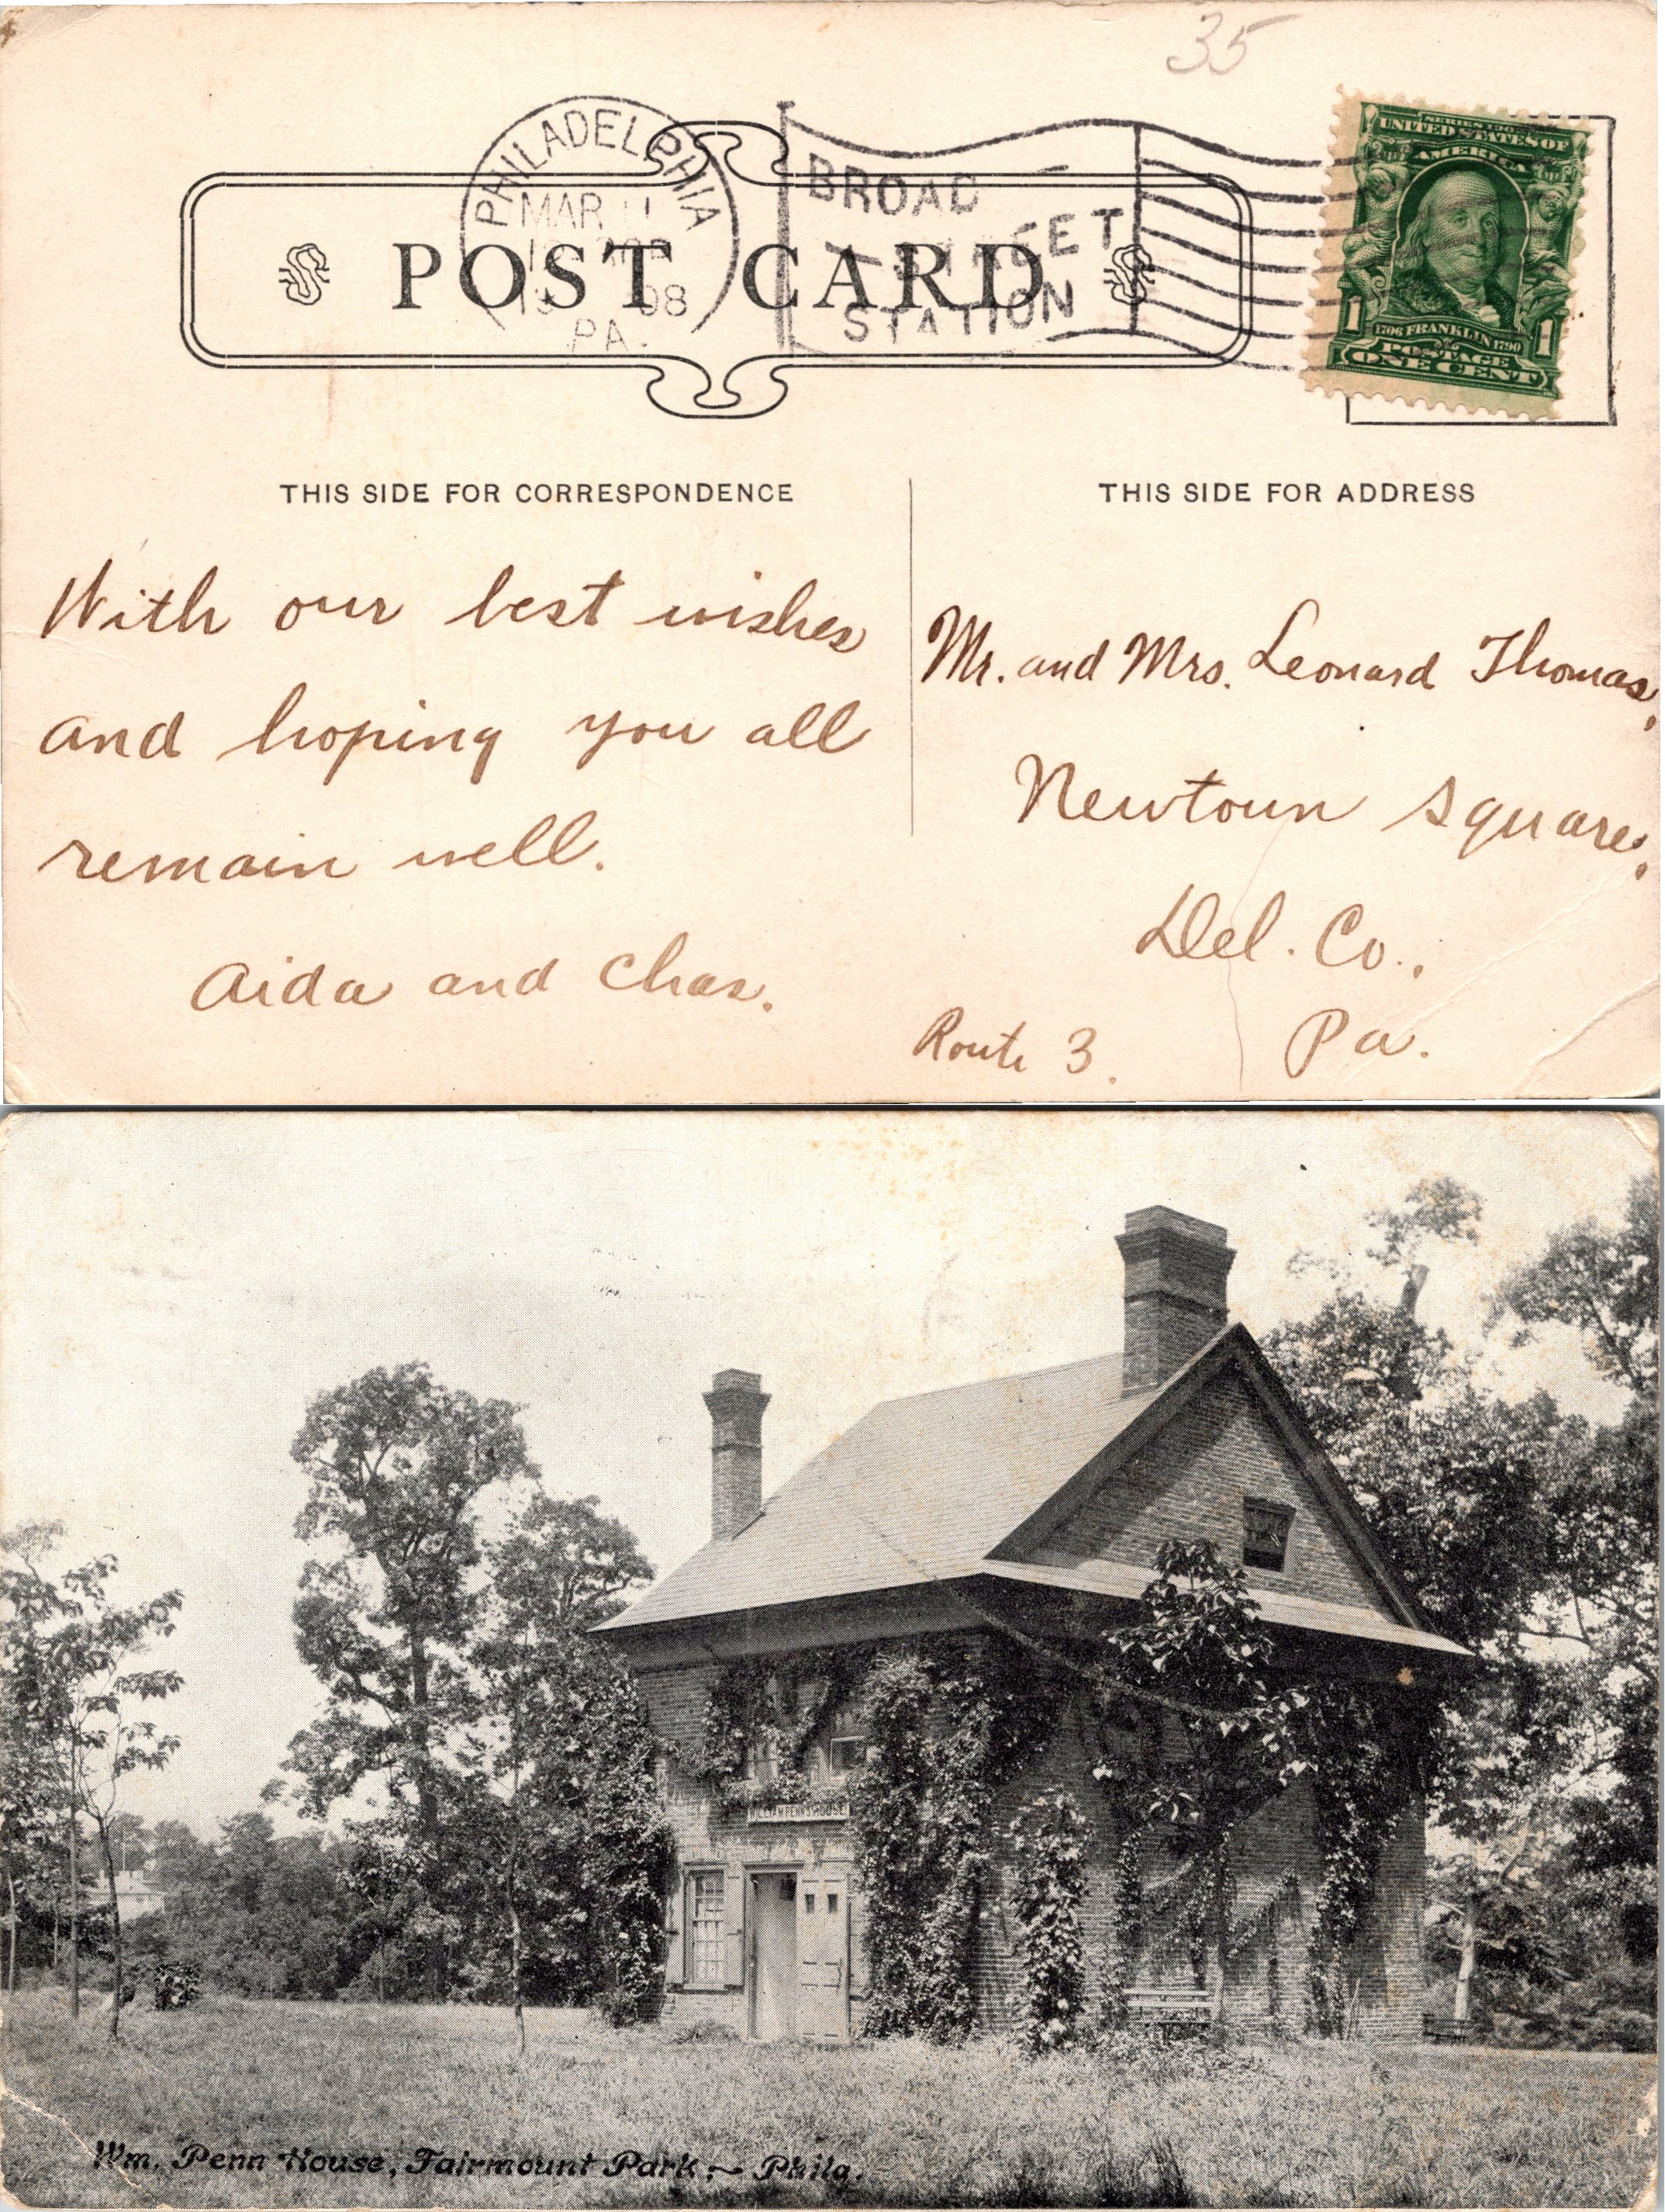 35
PHILADELPHIA
MAR 11
1908
PA.
BROAD
STREET
STATION
SERIES 1902
UNITED STATES OF
AMERICA
1 1
1706 FRANKLIN 1790
POSTAGE
ONE CENT
POST CARD
THIS SIDE FOR CORRESPONDENCE
THIS SIDE FOR ADDRESS
With our best wishes
and hoping you all
remain well.
Aida and Chas.
Mr. and Mrs. Leonard Thomas,
Newtown Square,
Del. Co.,
Pa.
Route 3.
WILLIAM PENN'S HOUSE
Wm. Penn House, Fairmount Park, ~ Phila.